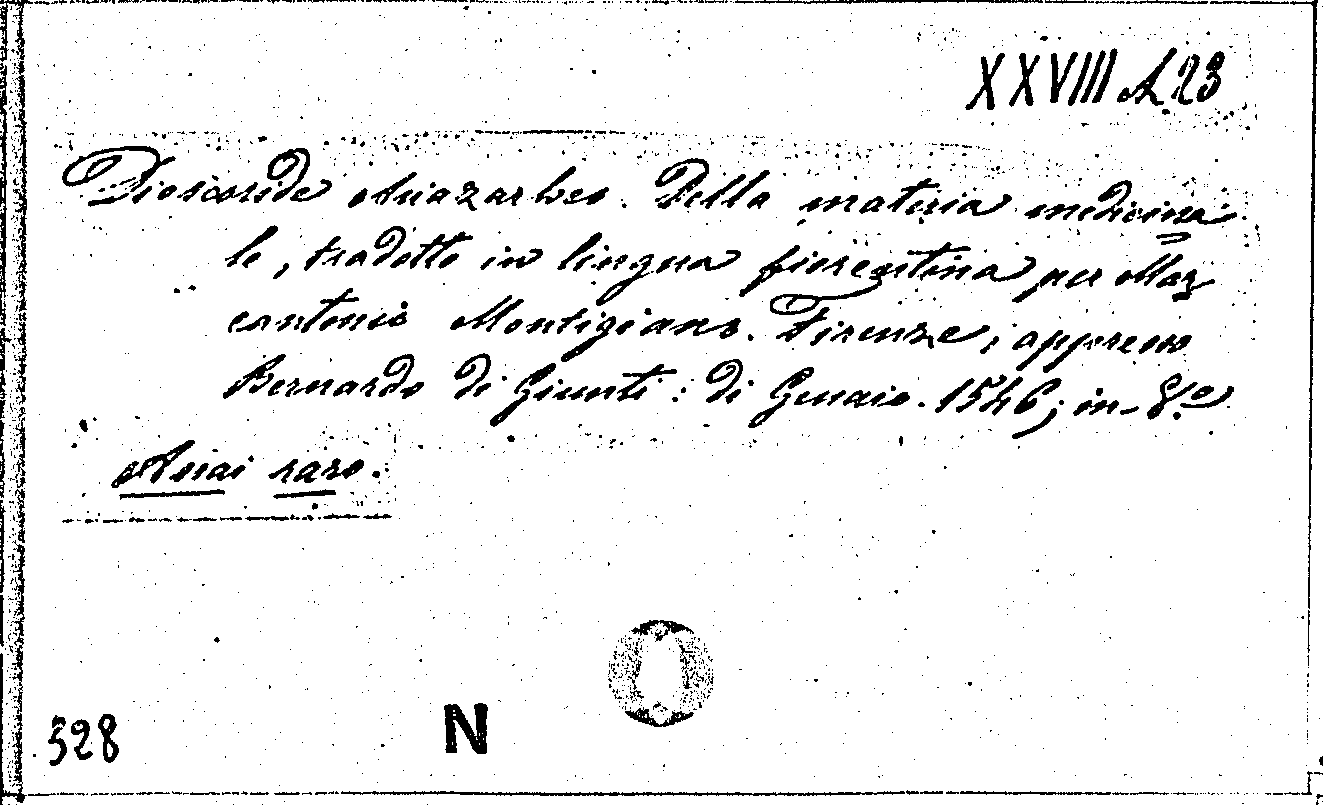 XXVIII A 23
Dioscoride Anazarbeo. Della materia medicina
le, tradotto in lingua fiorentina per Mar
cantonio Montigiano. Firenze, appresso
Bernardo di Giunti: di Genaio. 1546; in-8.º
Assai raro.
328
N